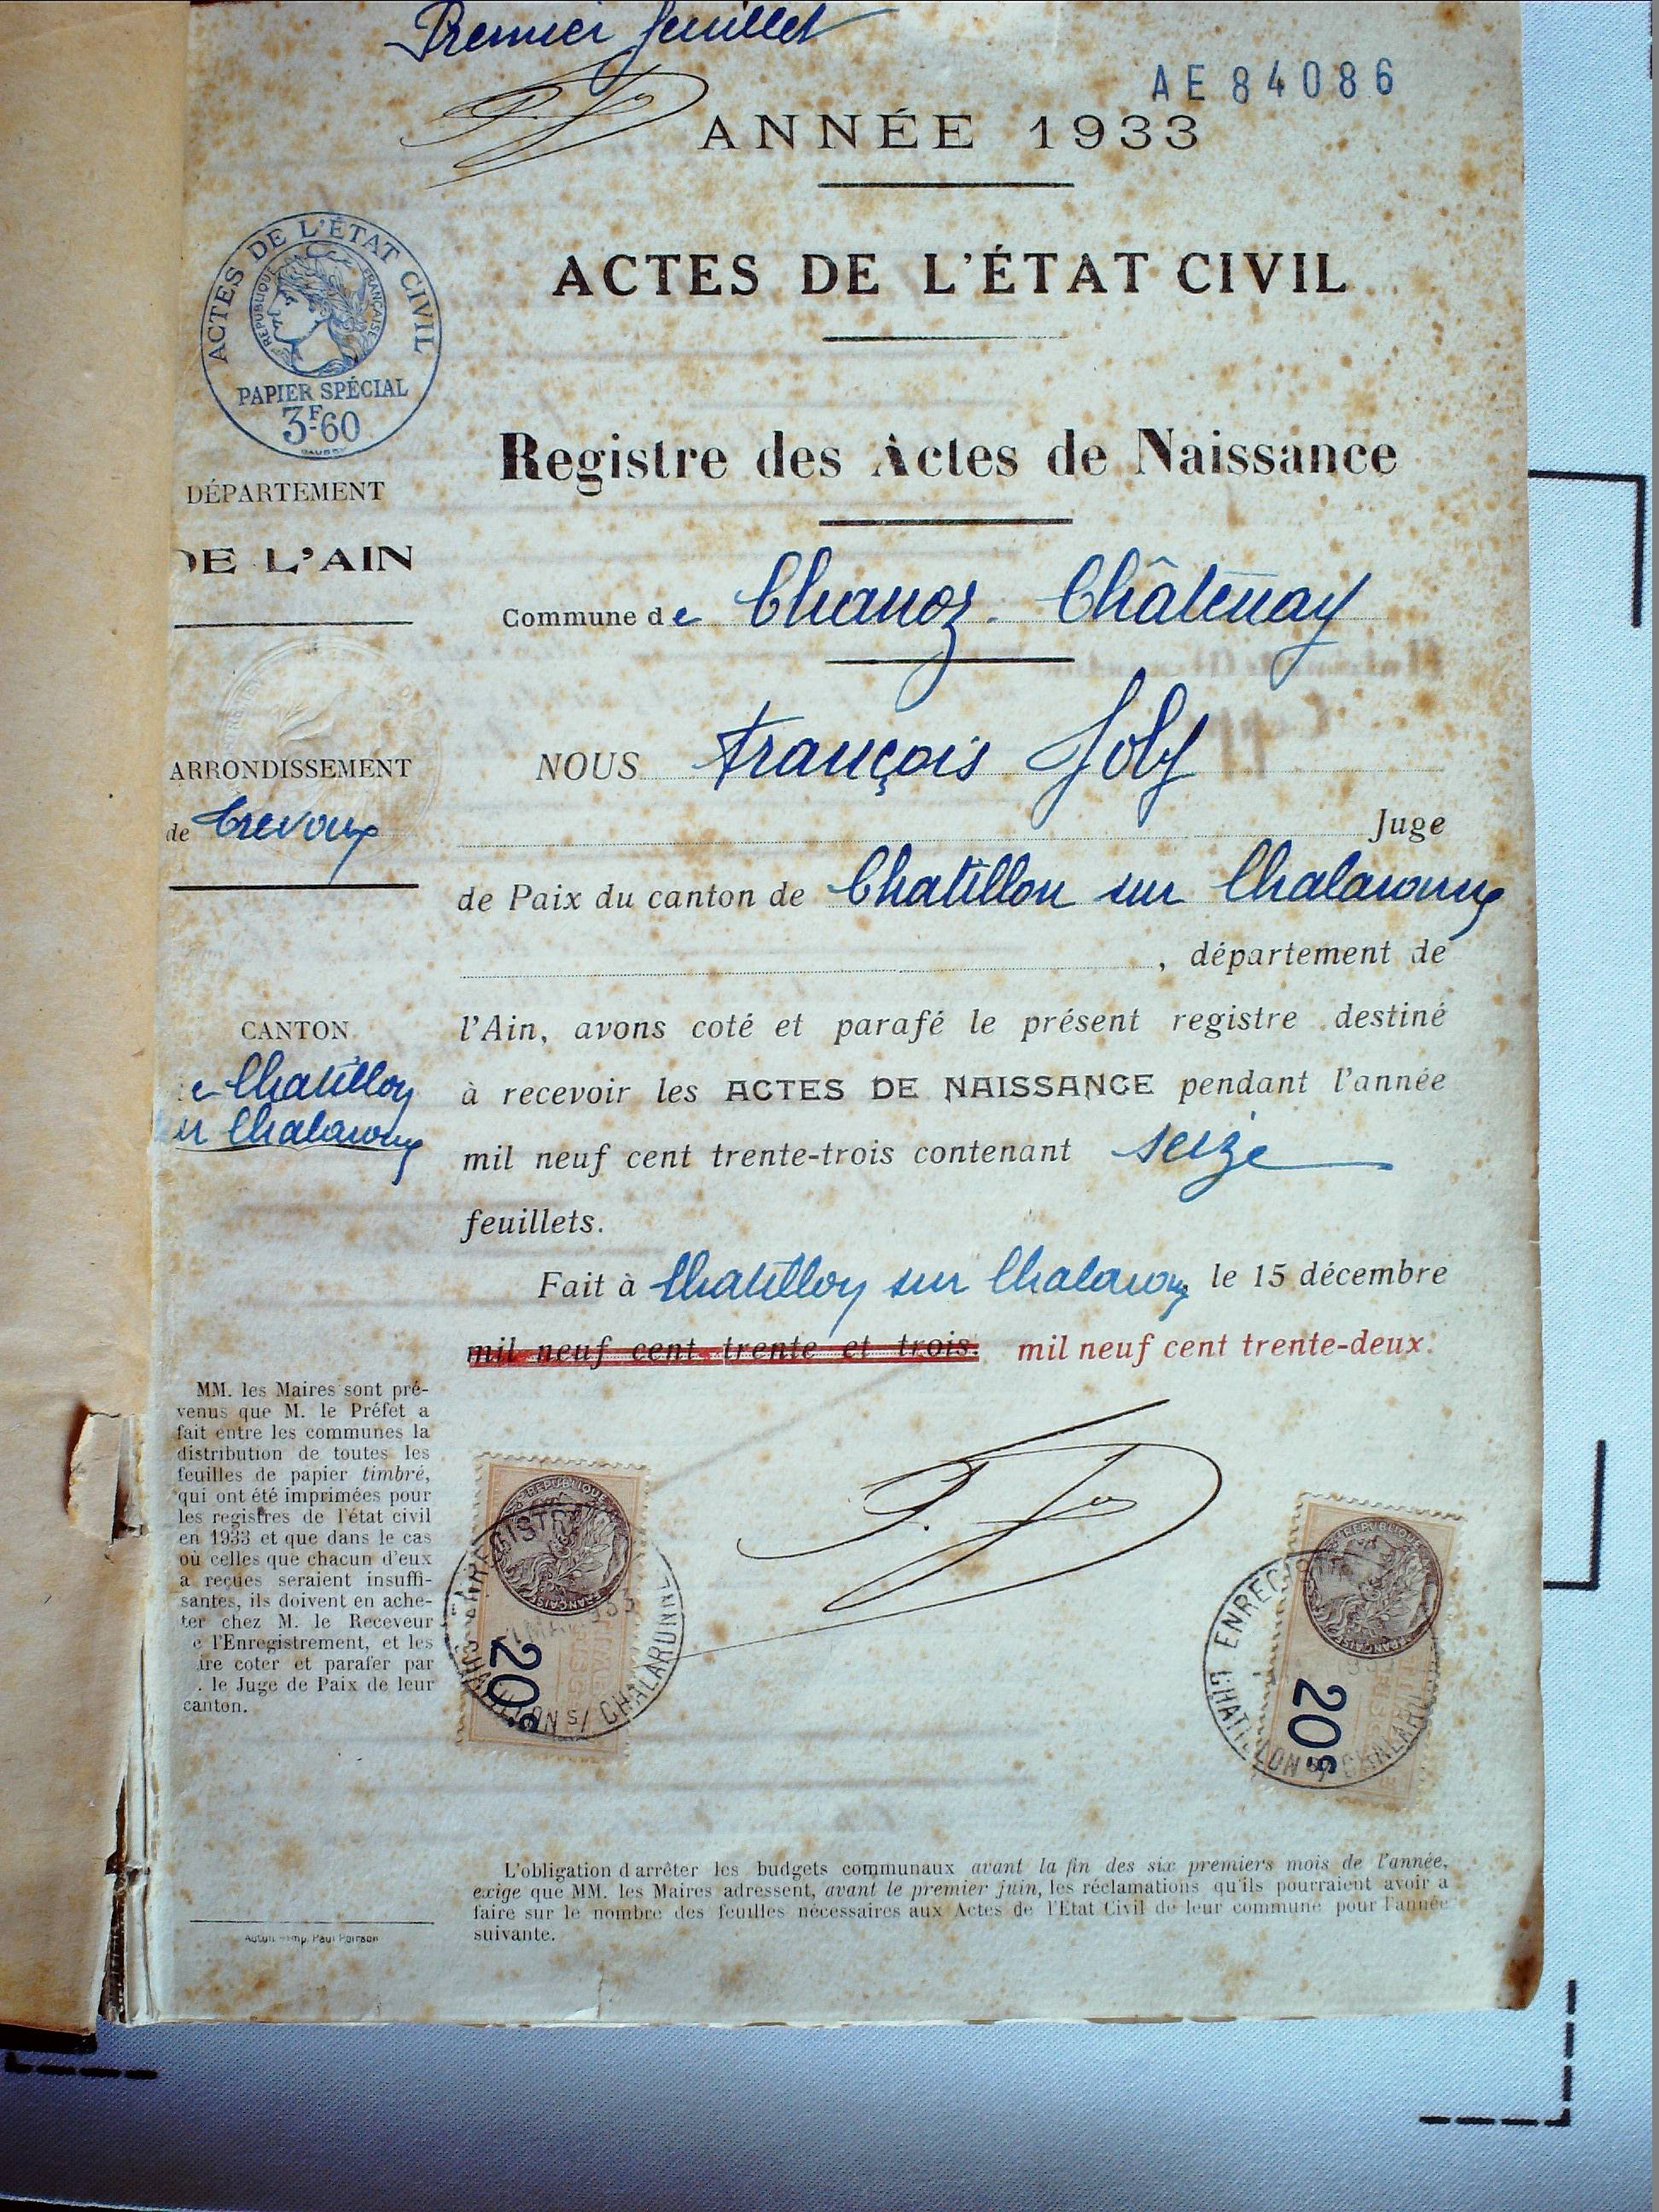 Premier feuillet
AE 84086
ANNÉE 1933
ACTES DE L'ÉTAT CIVIL
RÉPUBLIQUE FRANÇAISE
PAPIER SPÉCIAL
3F60
ACTES DE L'ÉTAT CIVIL
Registre des Actes de Naissance
DÉPARTEMENT
DE L'AIN
Commune de Chanoz-Châtenay
NOUS François Joly
ARRONDISSEMENT
de Trevoux
Juge
de Paix du canton de Chatillon sur Chalaronne
, département de
l'Ain, avons coté et parafé le présent registre destiné
CANTON
e Chatillon
ur Chalaronne
à recevoir les ACTES DE NAISSANCE pendant l'année
mil neuf cent trente-trois contenant seize
feuillets.
Fait à Chatillon sur Chalaronne le 15 décembre
mil neuf cent trente et trois. mil neuf cent trente-deux.
MM. les Maires sont pré-
venus que M. le Préfet a
fait entre les communes la
distribution de toutes les
feuilles de papier timbré,
qui ont été imprimées pour
les registres de l'état civil
en 1933 et que dans le cas
où celles que chacun d'eux
a reçues seraient insuffi-
santes, ils doivent en ache-
ter chez M. le Receveur
e l'Enregistrement, et les
ire coter et parafer par
. le Juge de Paix de leur
canton.
RÉPUBLIQUE FRANÇAISE
20c
CHATILLON S/ CHALARONNE
RÉPUBLIQUE FRANÇAISE
20c
L'obligation d'arrêter les budgets communaux avant la fin des six premiers mois de l'année,
exige que MM. les Maires adressent, avant le premier juin, les réclamations qu'ils pourraient avoir à
faire sur le nombre des feuilles nécessaires aux Actes de l'Etat Civil de leur commune pour l'année
suivante.
Autun Imp. Paul Poirson